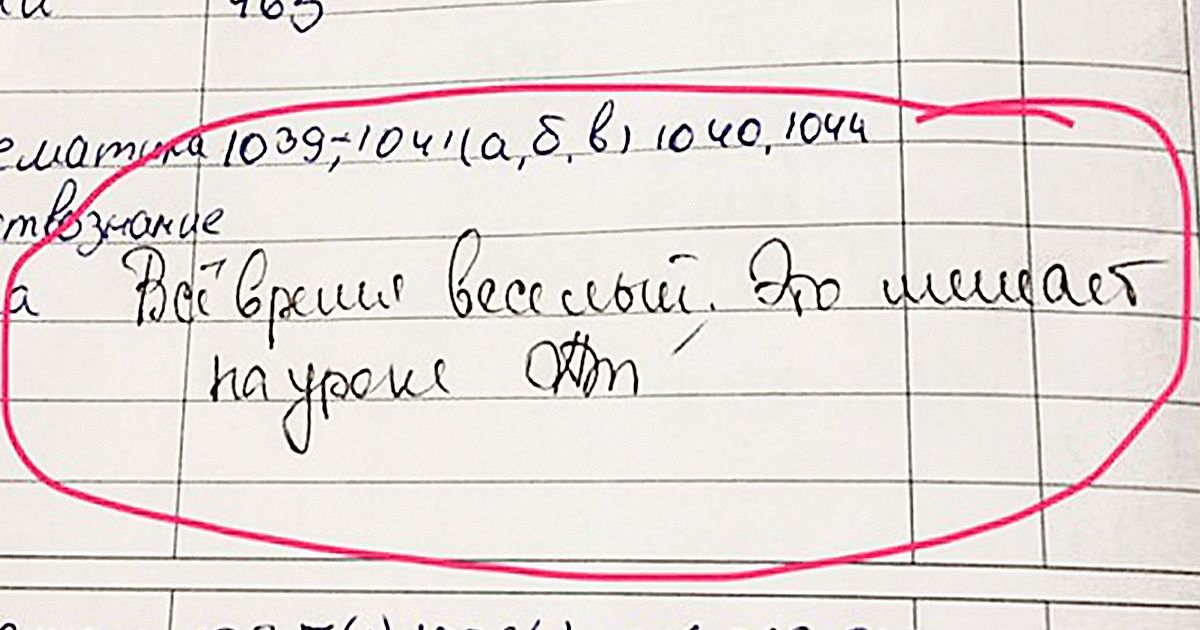 465
ематика 1039,-1041(а,б,в) 1040,1044
ствознание
а Всё время веселый. Это мешает
на уроке